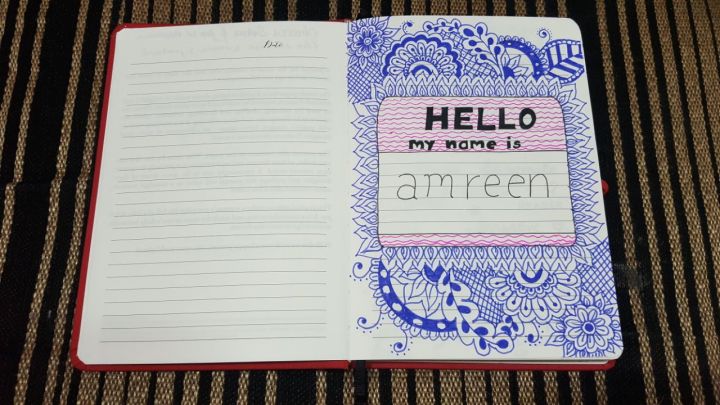 Date
HELLO
my name is
amreen